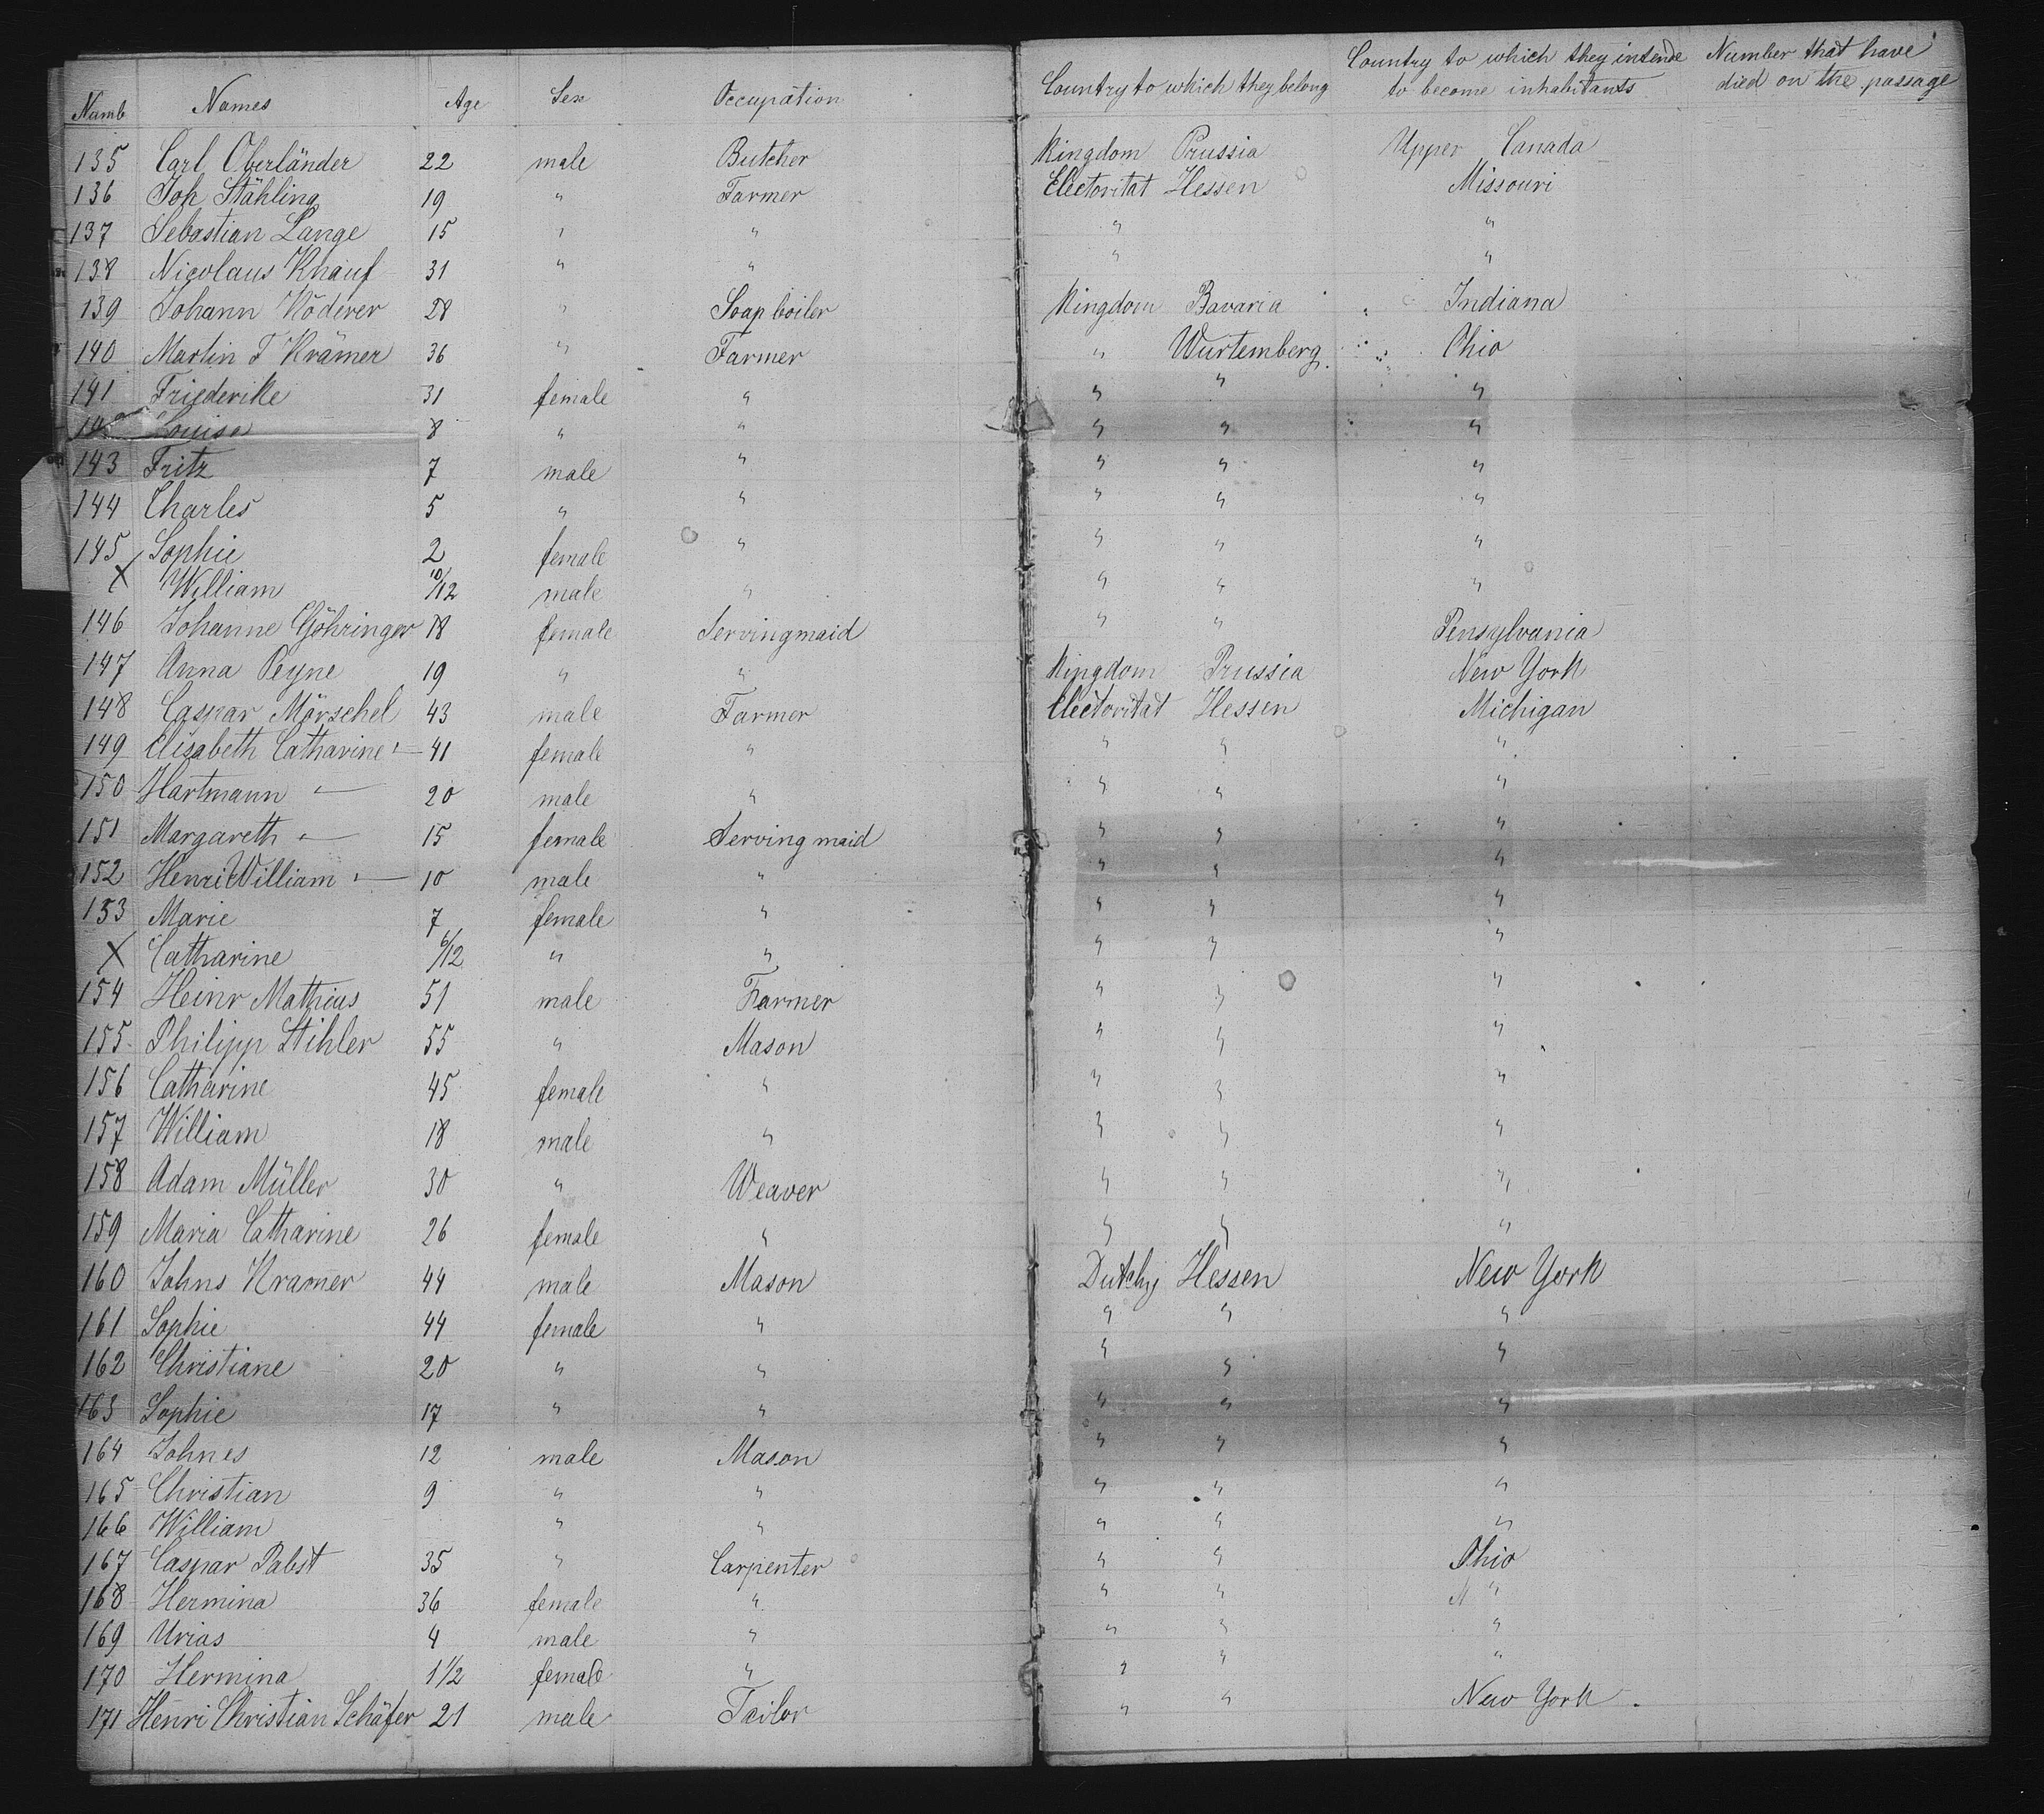 Numb Names Age Sex Occupation Country to which they belong Country to which they intende to become inhabitants Number that have died on the passage
135 Carl Oberländer 22 male Butcher Kingdom Prussia Upper Canada
136 Joh Stähling 19 " Farmer Electoritat Hessen Missouri
137 Sebastian Lange 15 " " " "
138 Nicolaus Knauf 31 " " " "
139 Johann Röderer 28 " Soap boiler Kingdom Bavaria Indiana
140 Martin F Krämer 36 " Farmer " Wurtemberg Ohio
141 Friederike 31 female " " " "
Louise 8 " " " " "
143 Fritz 7 male " " " "
144 Charles 5 " " " " "
145 Sophie 2 female " " " "
X William 10/12 male " " " "
146 Johanne Göhringer 18 female Servingmaid " " Pensylvania
147 Anna Peyne 19 " " Kingdom Prussia New York
148 Caspar Mörschel 43 male Farmer Electoritat Hessen Michigan
149 Elisabeth Catharine " — 41 female " " " "
150 Hartmann " — 20 male " " " "
151 Margareth " — 15 female Serving maid " " "
152 Henri William " — 10 male " " " "
153 Marie 7 female " " " "
X Catharine 6/12 " " " " "
154 Heinr Mathias 51 male Farmer " " "
155 Philipp Stihler 55 " Mason " " "
156 Catharine 45 female " " " "
157 William 18 male " " " "
158 Adam Müller 30 " Weaver " " "
159 Maria Catharine 26 female " " " "
160 Johns Kramer 44 male Mason Dutchy Hessen New York
161 Sophie 44 female " " " "
162 Christiane 20 " " " " "
163 Sophie 17 " " " " "
164 Johnes 12 male Mason " " "
165 Christian 9 " " " " "
166 William " " " " "
167 Caspar Pabst 35 " Carpenter " " Ohio
168 Hermina 36 female " " " "
169 Urias 4 male " " " "
170 Hermina 1 1/2 female " " " "
171 Henri Christian Schäfer 21 male Tailor " " New York